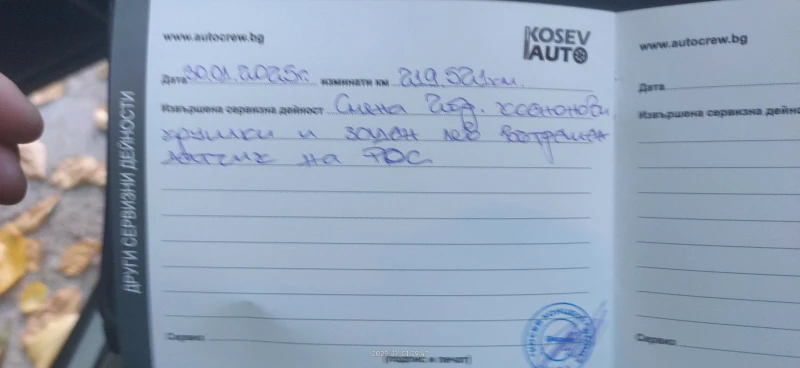 www.autocrew.bg
KOSEV
AUTO
Дата 30.01.2025г. изминати км 219.521км.
Извършена сервизна дейност Смяна 2бр. ксенонови
крушки и заден ляв вътрешен
датчик на PDC.
Сервиз
(подпис и печат)
ДРУГИ СЕРВИЗНИ ДЕЙНОСТИ
www.autocrew.bg
Дата
Извършена сервизна дейно
Сервиз